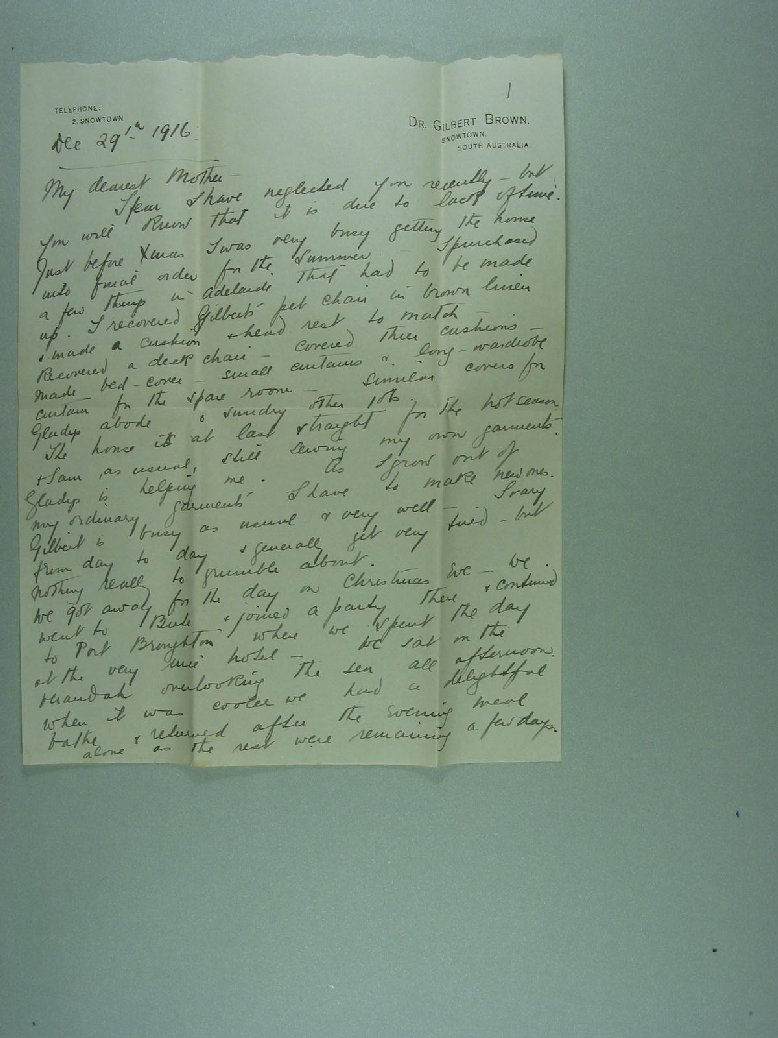 1
TELEPHONE:
2, SNOWTOWN
DR. GILBERT BROWN.
SNOWTOWN,
SOUTH AUSTRALIA.
Dec 29th 1916
My dearest Mother—
I fear I have neglected you recently – but
you will know that it is due to lack of time.
Just before Xmas I was very busy getting the house
into final order for the Summer. I purchased
a few things in Adelaide that had to be made
up. I recovered Gilbert's pet chair in brown linen
& made a cushion & head rest to match –
Recovered a deck chair – covered three cushions –
made bed-cover – small curtains & long-wardrobe
curtain for the spare room – similar covers for
Gladys abode & sundry other jobs
The house is at last straight for the hot season
& I am, as usual, still sewing my own garments.
Gladys is helping me. As I grow out of
my ordinary garments I have to make new ones.
Gilbert is busy as usual & very well – I vary
from day to day & generally get very tired – but
nothing really to grumble about.
We got away for the day on Christmas Eve – we
went to Bute & joined a party there & continued
to Port Broughton where we spent the day
at the very nice hotel – We sat on the
verandah overlooking the sea all afternoon.
When it was cooler we had a delightful
bathe & returned after the evening meal
alone as the rest were remaining a few days.